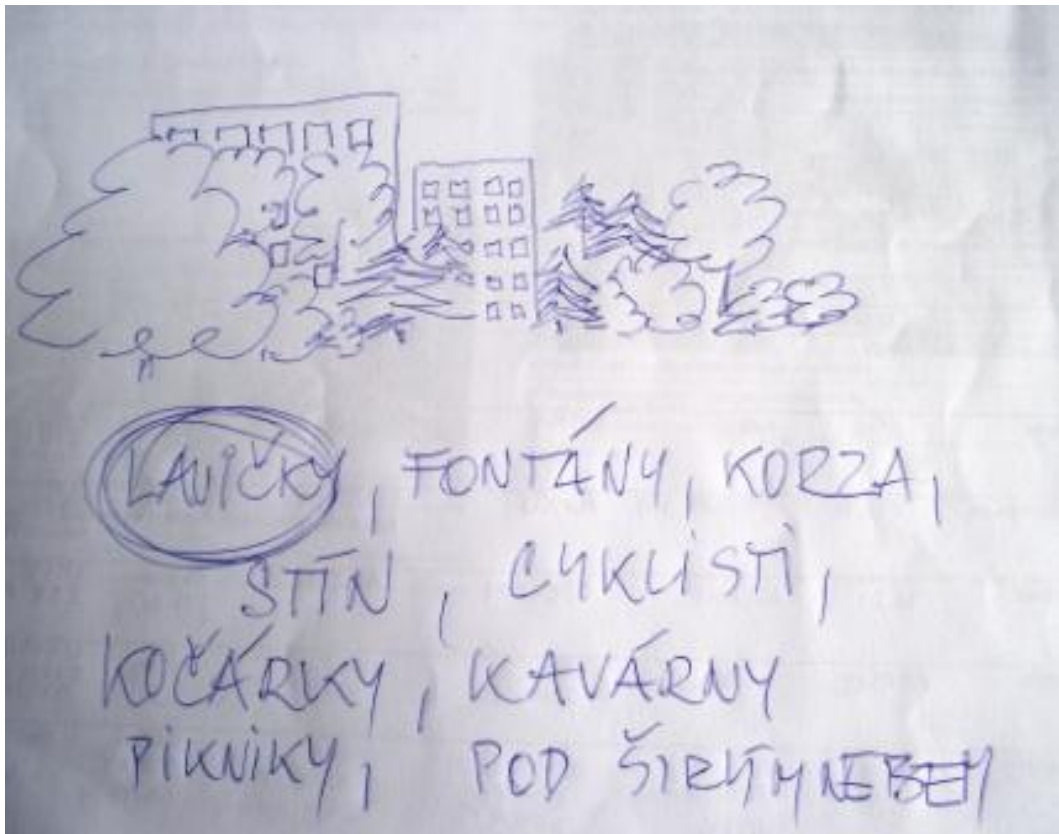 LAVIČKY, FONTÁNY, KORZA,
STÍN, CYKLISTI,
KOČÁRKY, KAVÁRNY
PIKNIKY, POD ŠIRÝM NEBEM